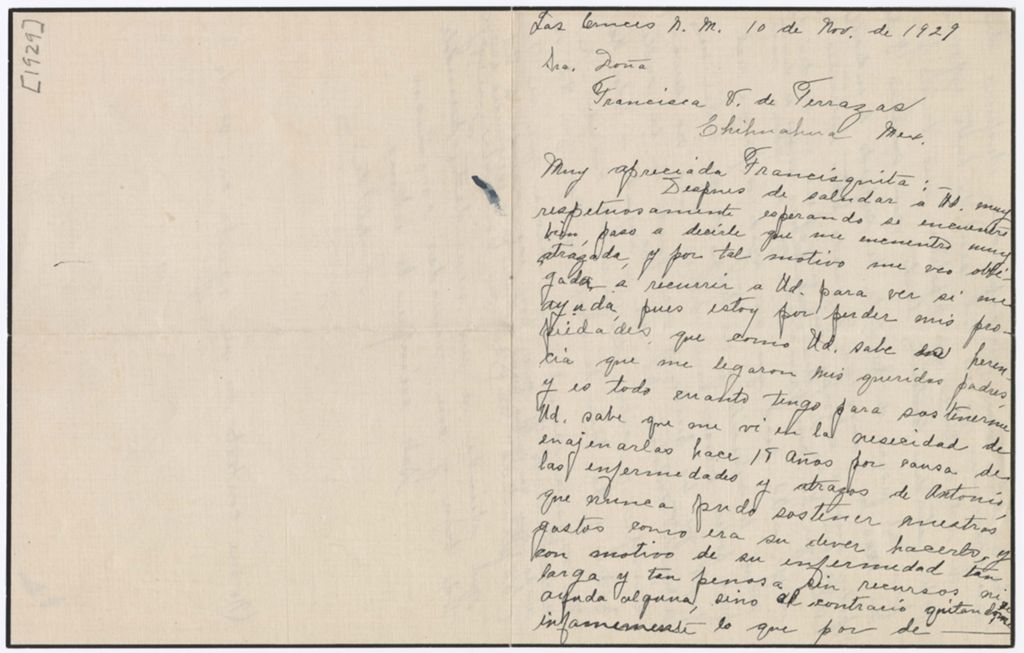 [1929]
Las Cruces N. M. 10 de Nov. de 1929
Sra. Doña
Francisca V. de Terrazas
Chihuahua Mex.
Muy apreciada Francisquita:
Despues de saludar a Ud. muy
respetuosamente esperando se encuentre
bien, paso a decirle que me encuentro muy
atrazada, y por tal motivo me veo obli-
gada a recurrir a Ud. para ver si me
ayuda, pues estoy por perder mis pro-
piedades, que como Ud. sabe son heren-
cia que me legaron mis queridos padres
y es todo cuanto tengo para sostenerme
Ud. sabe que me vi en la nesecidad de
enajenarlas hace 15 Años por causa de
las enfermedades y atrazos de Antonio
que nunca pudo sostener nuestros
gastos como era su dever hacerlo, y
con motivo de su enfermedad tan
larga y tan penosa sin recursos ni
ayuda alguna, sino al contrario quitandoseme
infamemente lo que por de